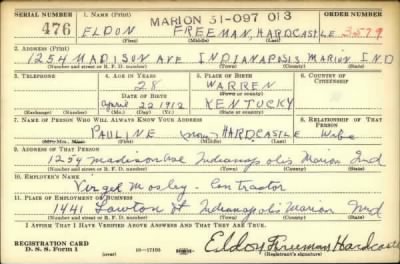 SERIAL NUMBER
1. NAME (Print)
MARION 31-097 013
ORDER NUMBER
476
ELDON FREEMAN, HARDCASTLE
3579
(First) (Middle) (Last)
2. ADDRESS (Print)
1254 MADISON AVE INDIANAPOLIS MARION IND
(Number and street or R. F. D. number) (Town) (County) (State)
3. TELEPHONE
4. AGE IN YEARS
5. PLACE OF BIRTH
6. COUNTRY OF CITIZENSHIP
28
WARREN
(Town or county)
DATE OF BIRTH
April 22 1912
KENTUCKY
(Exchange) (Number)
(Mo.) (Day) (Yr.)
(State or country)
7. NAME OF PERSON WHO WILL ALWAYS KNOW YOUR ADDRESS
8. RELATIONSHIP OF THAT PERSON
PAULINE HARDCASTLE Wife
(Mr., Mrs., Miss) (First) (Middle) (Last)
9. ADDRESS OF THAT PERSON
1254 Madison Ave Indianapolis Marion Ind
(Number and street or R. F. D. number) (Town) (County) (State)
10. EMPLOYER'S NAME
Virgel Mosley - Contractor
11. PLACE OF EMPLOYMENT OR BUSINESS
1441 Lawton St Indianapolis Marion Ind
(Number and street or R. F. D. number) (Town) (County) (State)
I AFFIRM THAT I HAVE VERIFIED ABOVE ANSWERS AND THAT THEY ARE TRUE.
REGISTRATION CARD
D. S. S. Form 1
16-17105
Eldon Freeman Hardcastle
(Registrant's signature)